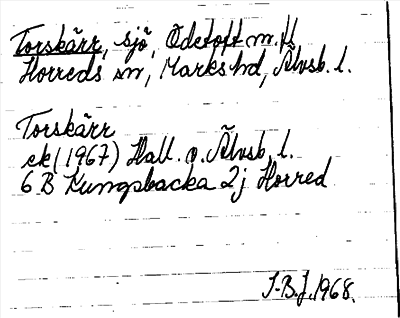 Torskärr, sjö, Ödetoft m.fl
Horreds sn, Marks hd, Älvsb. l.
Torskärr
ek (1967) Hall. o. Älvsb. l.
6 B Kungsbacka 2j Horred
J-B.J. 1968.